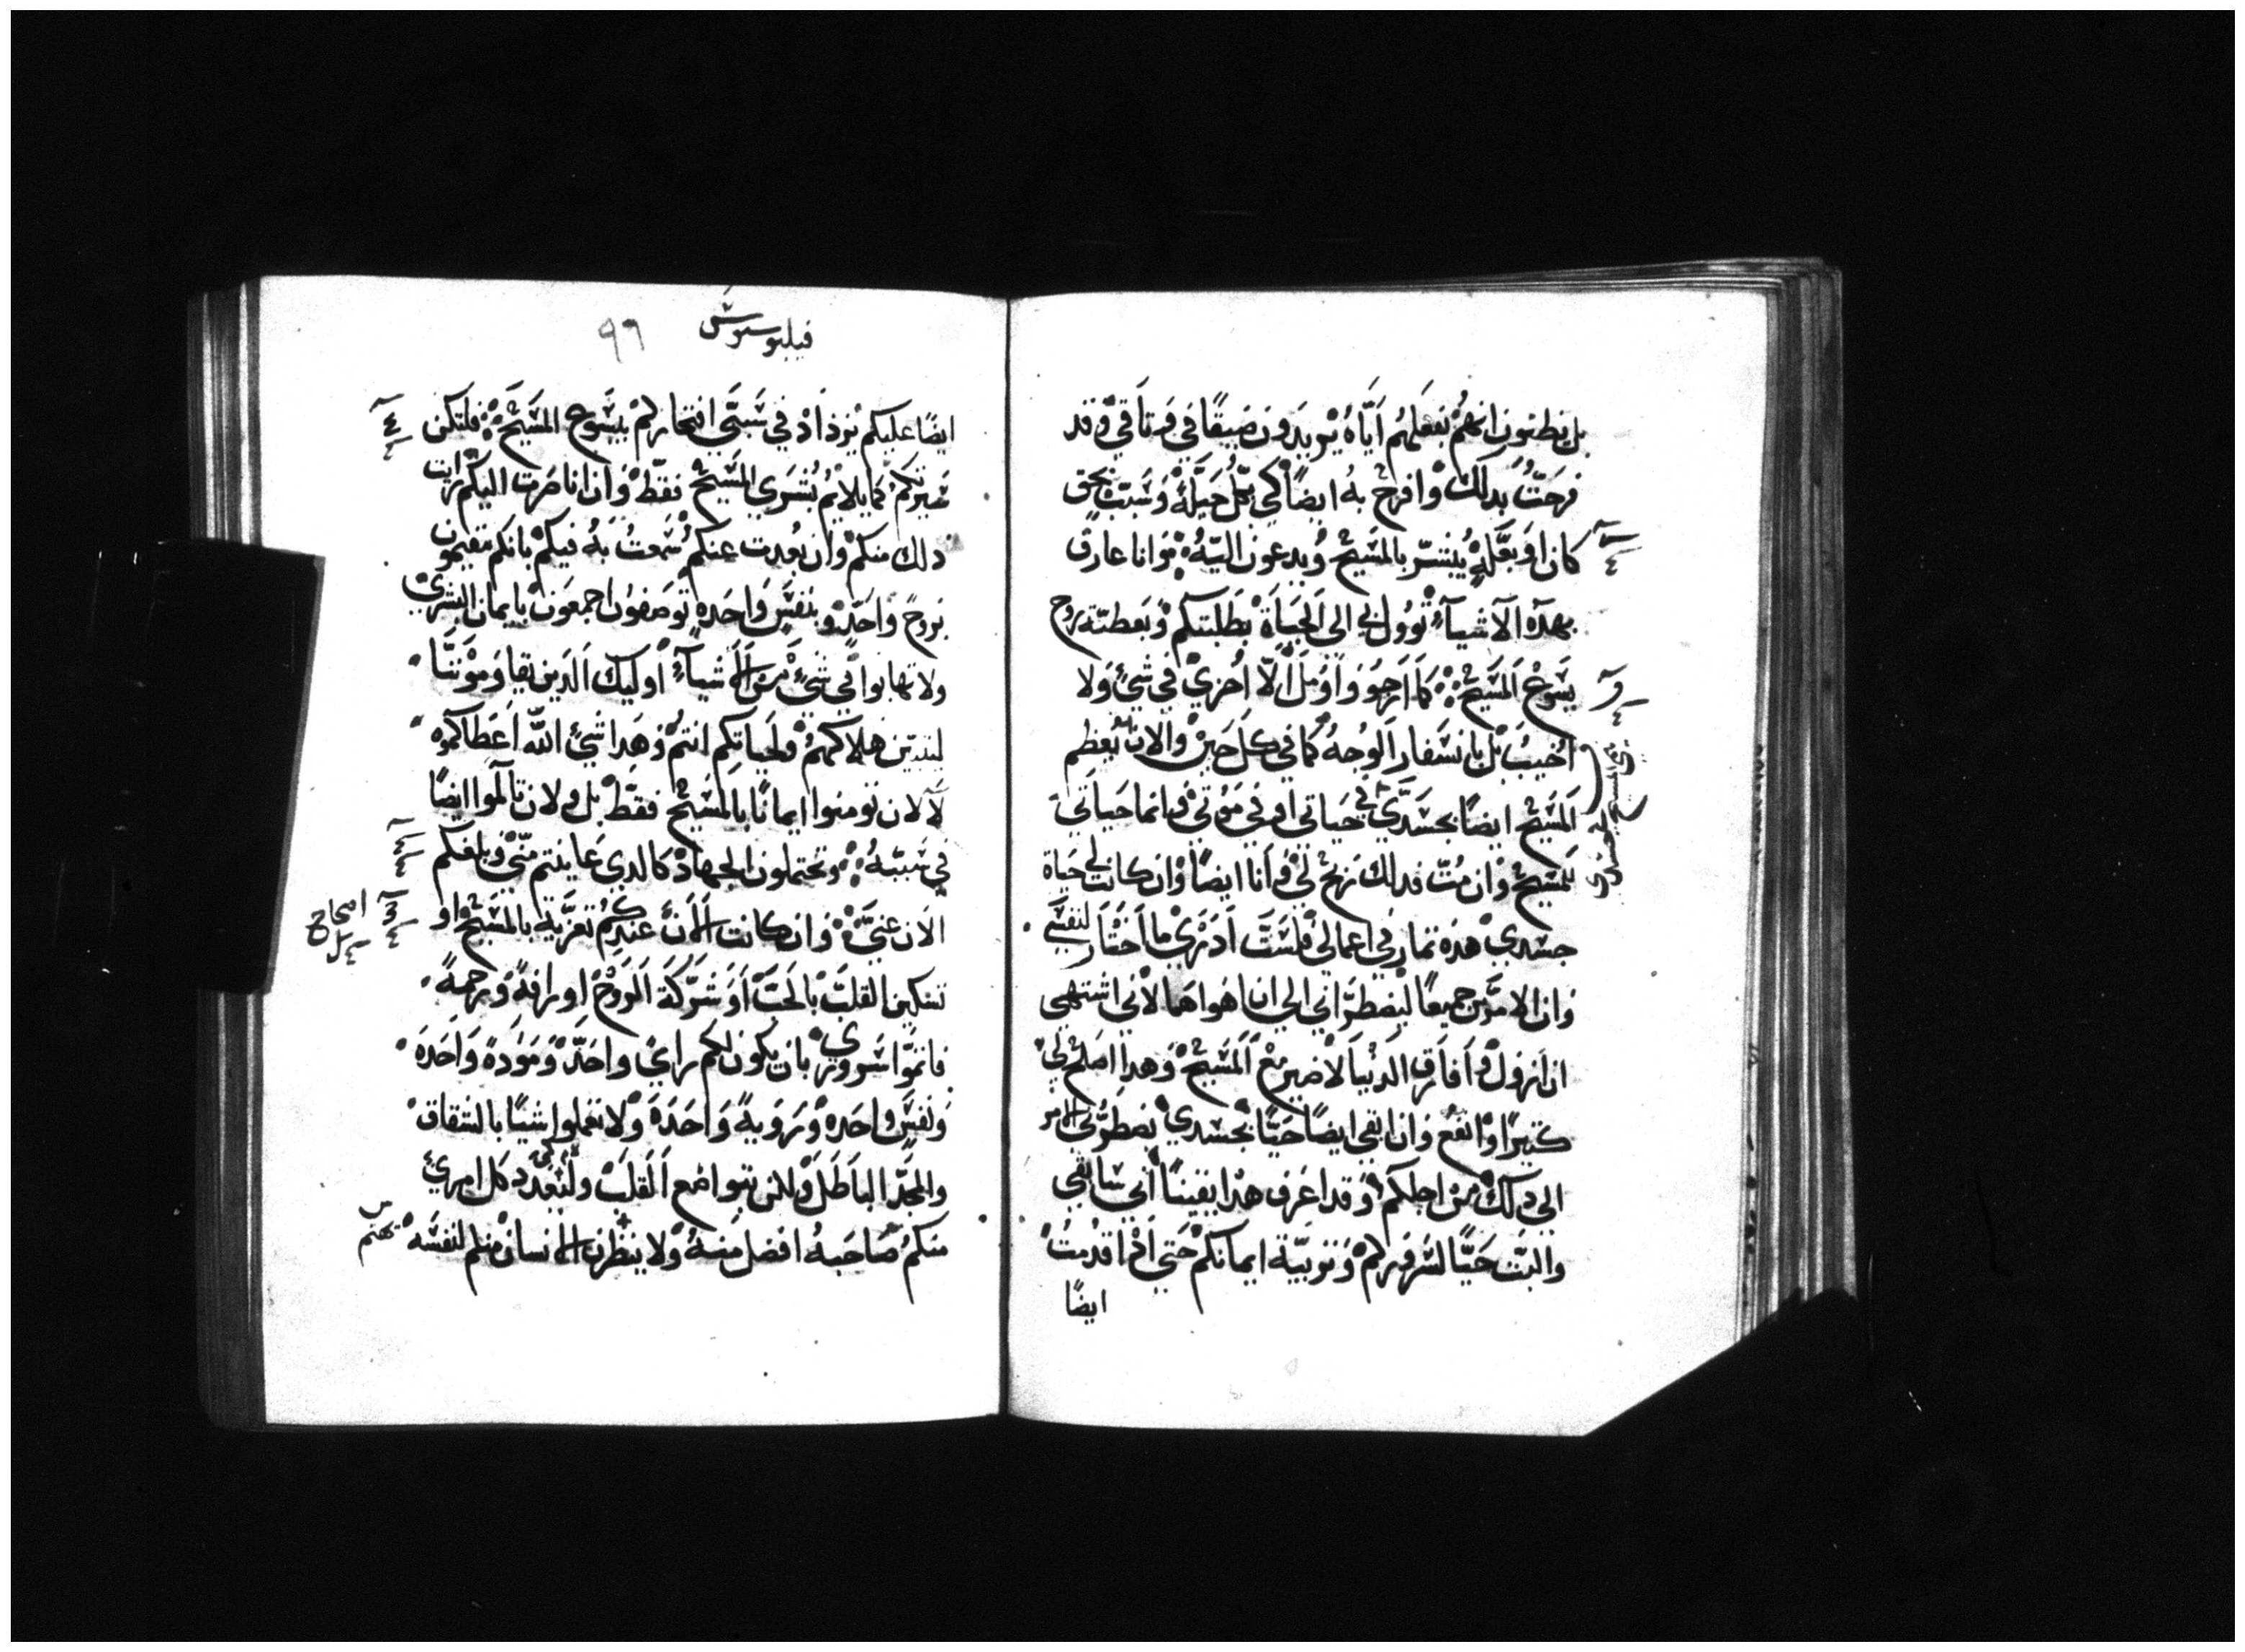 بل يظنون انهم بفعلهم اياه يزيدون ضيقا في وتاقي وقد
فرحت بدلك وافرح به ايضا كي بكل حيلة وسبب بحق
كان او بعلة يبشر بالمسيح ويدعون اليه وانا عارف
بهده الاشياء تؤول لي الي الحياة بطلبتكم وبعطية روح
يسوع المسيح كما ارجو واومل الا اخزي في شئ ولا
اخيب بل بانسفار الوجه كما في كل حين والان يعظم
المسيح ايضا بجسدي في حياتي او في موتي فانما حياتي
للمسيح وان مت فدلك ربح لي وانا ايضا وان كانت لي حياة
جسدي هده تمار في اعمالي فلست ادري ما اختار لنفسي
وان الامرين جميعا ليضطراني الي ان اهواهما لاني اشتهي
ان ازول وافارق الدنيا لاصير مع المسيح وهدا اصلح لي
كتيرا وانفع وان ابقي ايضا حيا بجسدي يضطرني الامر
الي دلك من اجلكم وقد اعرف هدا يقينا اني سابقي
والبت حيا لسروركم وتربية ايمانكم حتي ادا قدمت
ايضا
فيليبوسيوس
٩٦
ايضا عليكم يزداد في سببي افتخاركم بيسوع المسيح فلتكن
سيرتكم كما يلائم بشري المسيح فقط وان انا صرت اليكم رايت
دلك منكم وان بعدت عنكم سمعت به فيكم بانكم مقيمون
بروح واحد وبنفس واحده توصفون اجمعون بايمان البشري
ولا تهابوا في شئ من الاشياء اوليك الدين يقاومونا
لتبين هلاكهم ولحياتكم انتم وهدا شئ الله اعطاكموه
لا لان تومنوا ايمانا بالمسيح فقط بل ولان تالموا ايضا
في سببه وتحتملون الجهاد كالدي عاينتم مني وبلغكم
الان عني وان كانت الان عندكم تعزية بالمسيح او
تسكين القلب بالحب او شركة الروح او رافة ورحمة
فاتموا سروري بان يكون لكم راي واحد ومودة واحده
ونفس واحده وروية واحدة ولا تعملوا شيا بالشقاق
والمجد الباطل ولكن بتواضع القلب وليعدد كل امرئ
منكم صاحبه افضل منه ولا ينظرن الانسان منكم لنفسه
اصحاح